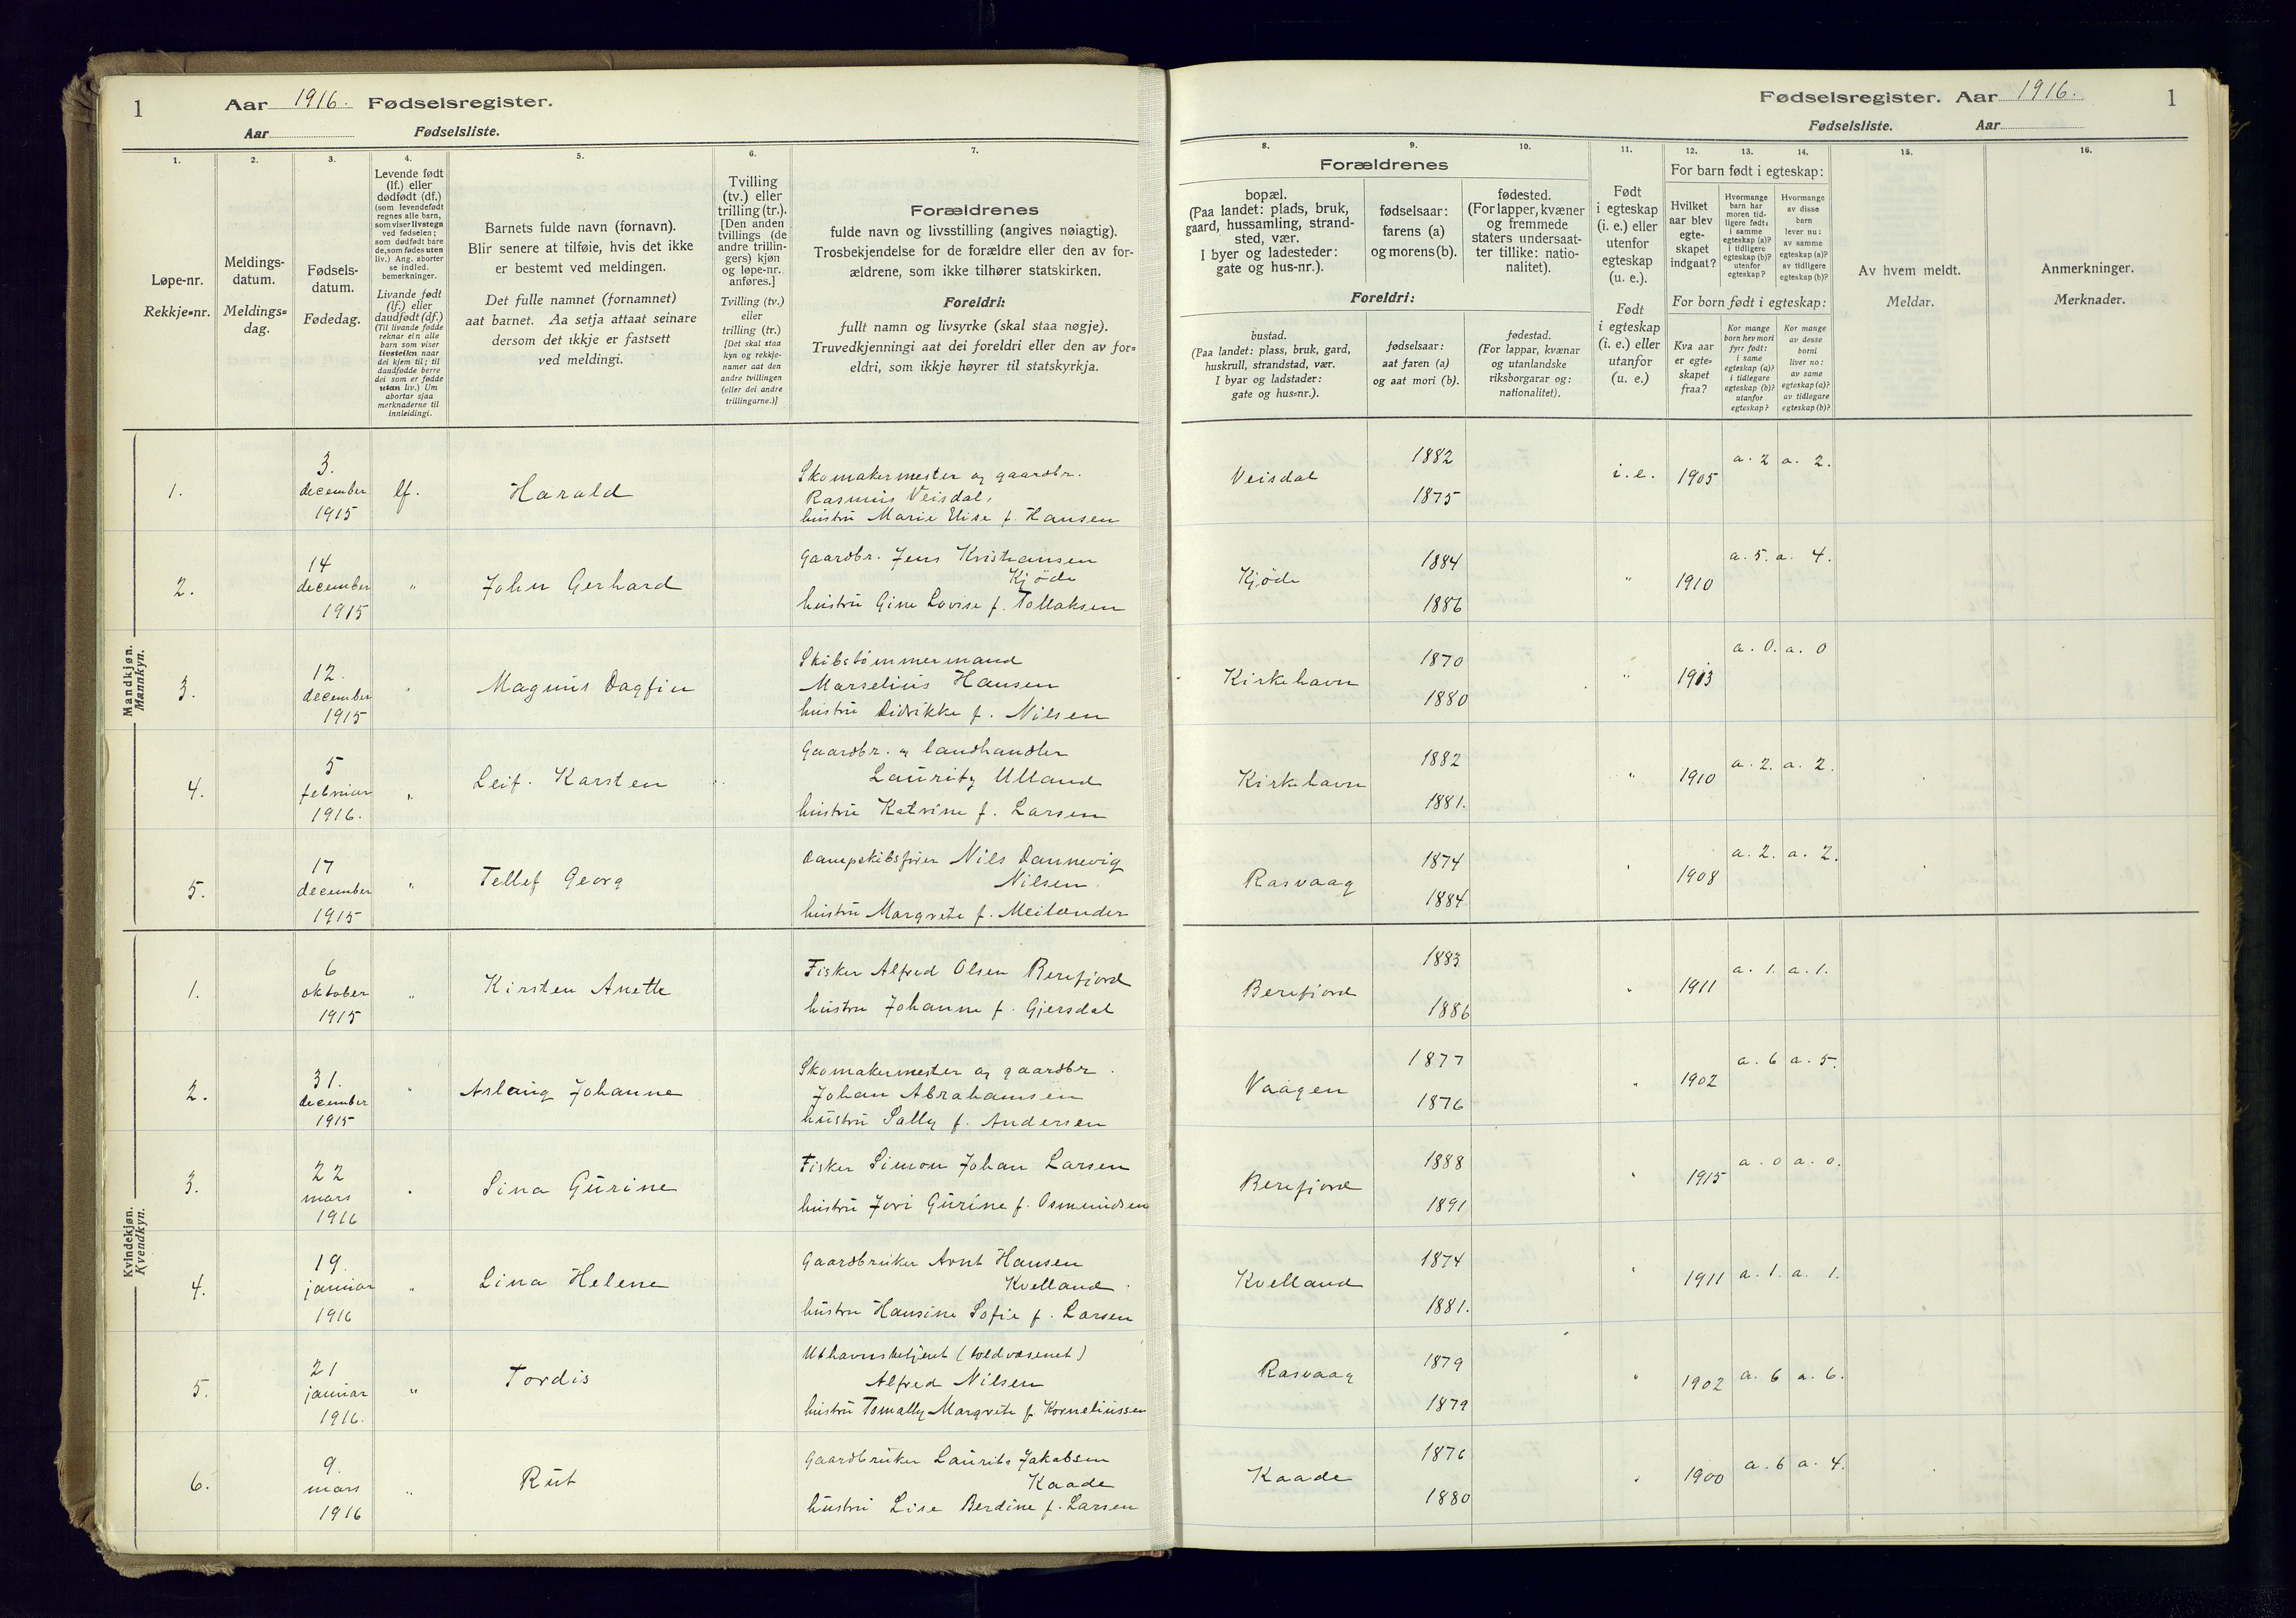 1
Aar 1916. Fødselsregister.
Aar Fødselsliste.
Fødselsregister. Aar 1916. 1
Fødselsliste. Aar
1.
2.
3.
4.
5.
6.
7.
Løpe-nr.
Rekkje=nr.
Meldings-
datum.
Meldings=
dag.
Fødsels-
datum.
Fødedag.
Levende født
(lf.) eller
dødfødt (df.)
(som levendefødt
regnes alle barn,
som viser livstegn
ved fødselen;
som dødfødt bare
de, som fødes uten
liv.) Ang. aborter
se indled.
bemerkninger.
Livande født
(lf.) eller
daudfødt (df.)
(Til livande fødde
reknar ein alle
barn som viser
livsteikn naar
dei kjem til; til
daudfødde berre
dei som er fødde
utan liv.) Um
abortar sjaa
merknaderne til
innleidingi.
Barnets fulde navn (fornavn).
Blir senere at tilføie, hvis det ikke
er bestemt ved meldingen.
Det fulle namnet (fornamnet)
aat barnet. Aa setja attaat seinare
dersom det ikkje er fastsett
ved meldingi.
Tvilling
(tv.) eller
trilling (tr.).
[Den anden
tvillings (de
andre trillin-
gers) kjøn
og løpe-nr.
anføres.]
Tvilling (tv.)
eller
trilling (tr.)
[Det skal staa
kyn og rekkje-
numer aat den
andre tvillingen
(eller dei andre
trillingarne.)]
Forældrenes
fulde navn og livsstilling (angives nøiagtig).
Trosbekjendelse for de forældre eller den av for-
ældrene, som ikke tilhører statskirken.
Foreldri:
fullt namn og livsyrke (skal staa nøgje).
Truvedkjenningi aat dei foreldri eller den av for=
eldri, som ikkje høyrer til statskyrkja.
8.
9.
10.
11.
12.
13.
14.
15.
16.
Forældrenes
bopæl.
(Paa landet: plads, bruk,
gaard, hussamling, strand-
sted, vær.
I byer og ladesteder:
gate og hus-nr.).
fødselsaar:
farens (a)
og morens (b).
fødested.
(For lapper, kvæner
og fremmede
staters undersaat-
ter tillike: natio-
nalitet).
Foreldri:
bustad.
(Paa landet: plass, bruk, gard,
huskrull, strandstad, vær.
I byar og ladstader:
gate og hus=nr.).
fødselsaar:
aat faren (a)
og aat mori (b).
fødestad.
(For lappar, kvænar
og utanlandske
riksborgarar og:
nationalitet).
Født
i egteskap
(i. e.) eller
utenfor
egteskap
(u. e.).
Født
i egteskap
(i. e.) eller
utanfor
(u. e.)
For barn født i egteskap:
Hvilket
aar blev
egte-
skapet
indgaat?
Hvormange
barn har
moren tid-
ligere født,
i samme
egteskap (a)?
i tidligere
egteskap (b)?
utenfor
egteskap?
Hvormange
av disse
barn
lever nu:
av samme
egteskap (a)?
av tidligere
egteskap (b)?
For born født i egteskap:
Kva aar
er egte=
skapet
fraa?
Kor mange
born hev mori
fyrr født:
i same
egteskap (a)?
i tidlegare
egteskap (b)?
utanfor
egteskap?
Kor mange
av desse
borni
liver no:
av same
egteskap (a)?
av tidlegare
egteskap (b)?
Av hvem meldt.
Meldar.
Anmerkninger.
Merknader.
Mandkjøn.
Mannkyn.
1. 3. december 1915 lf. Harald
Skomakermester og gaardbr.
Rasmus Veisdal,
hustru Marie Elise f. Hansen
Veisdal 1882 1875 i.e. 1905 a. 2 a. 2.
2. 14 december 1915 " John Gerhard
Gaardbr. Jens Kristiansen
Kjöde
hustru Gine Lovise f. Tollaksen
Kjöde 1884 1886 " 1910 a. 5. a. 4.
3. 12. december 1915 " Magnus Dagfin
Skibstömmermand
Marselius Hansen
hustru Didrikke f. Nilsen
Kirkehavn 1870 1880 " 1913 a. 0. a. 0
4. 5 februar 1916. " Leif. Karsten
Gaardbr. og landhandler
Lauritz Ulland
hustru Katrine f. Larsen
Kirkehavn 1882 1881. " 1910 a. 2. a. 2.
5. 17 december 1915 " Tellef Georg
Dampskibsfører Nils Dannevig
Nilsen.
hustru Margrete f. Meilænder
Rasvaag 1874 1884 " 1908 a. 2. a. 2.
Kvindekjøn.
Kvendkyn.
1. 6 oktober 1915 " Kirsten Anette
Fisker Alfred Olsen Berefjord
hustru Johanne f. Gjersdal
Berefjord 1883 1886 " 1911 a. 1. a. 1.
2. 31. december 1915 " Aslaug Johanne
Skomakermester og gaardbr.
Johan Abrahamsen
hustru Sally f. Andersen
Vaagen 1877 1876 " 1902 a. 6 a. 5.
3. 22 mars 1916 " Sina Gurine
Fisker Simon Johan Larsen
hustru Jori Gurine f. Osmundsen
Berefjord 1888 1891 " 1915 a. 0 a. 0.
4. 19. januar 1916 " Lina Helene
Gaardbruker Arnt Hansen
Kvelland.
hustru Hansine Sofie f. Larsen
Kvelland 1874 1881. " 1911 a. 1. a. 1.
5. 21 januar 1916. " Tordis
Uthavnsbetjent (toldvæsenet)
Alfred Nilsen
hustru Tomally Margrete f. Korneliussen
Rasvaag 1879 1879 " 1902 a. 6 a. 6.
6. 9. mars 1916 " Rut
Gaardbruker Laurits Jakobsen
Kaade
hustru Lise Berdine f. Larsen
Kaade 1876 1880 " 1900 a. 6 a. 4.